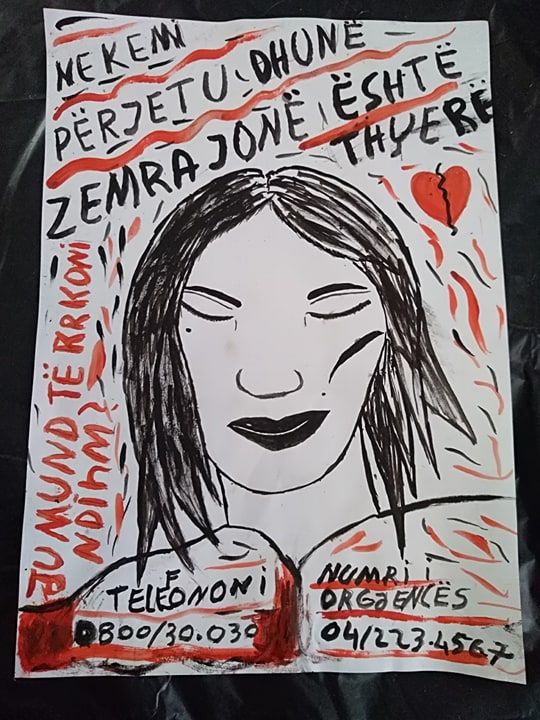 NE KEMI
PËRJETU, DHUNË
ZEMRA JONË, ËSHTË
THYERË
JU MUND TË KRIKONI
NDIHMË
TELEFONONI
0800/30.030
NUMRI I
ORGJENCËS
04/223.4567